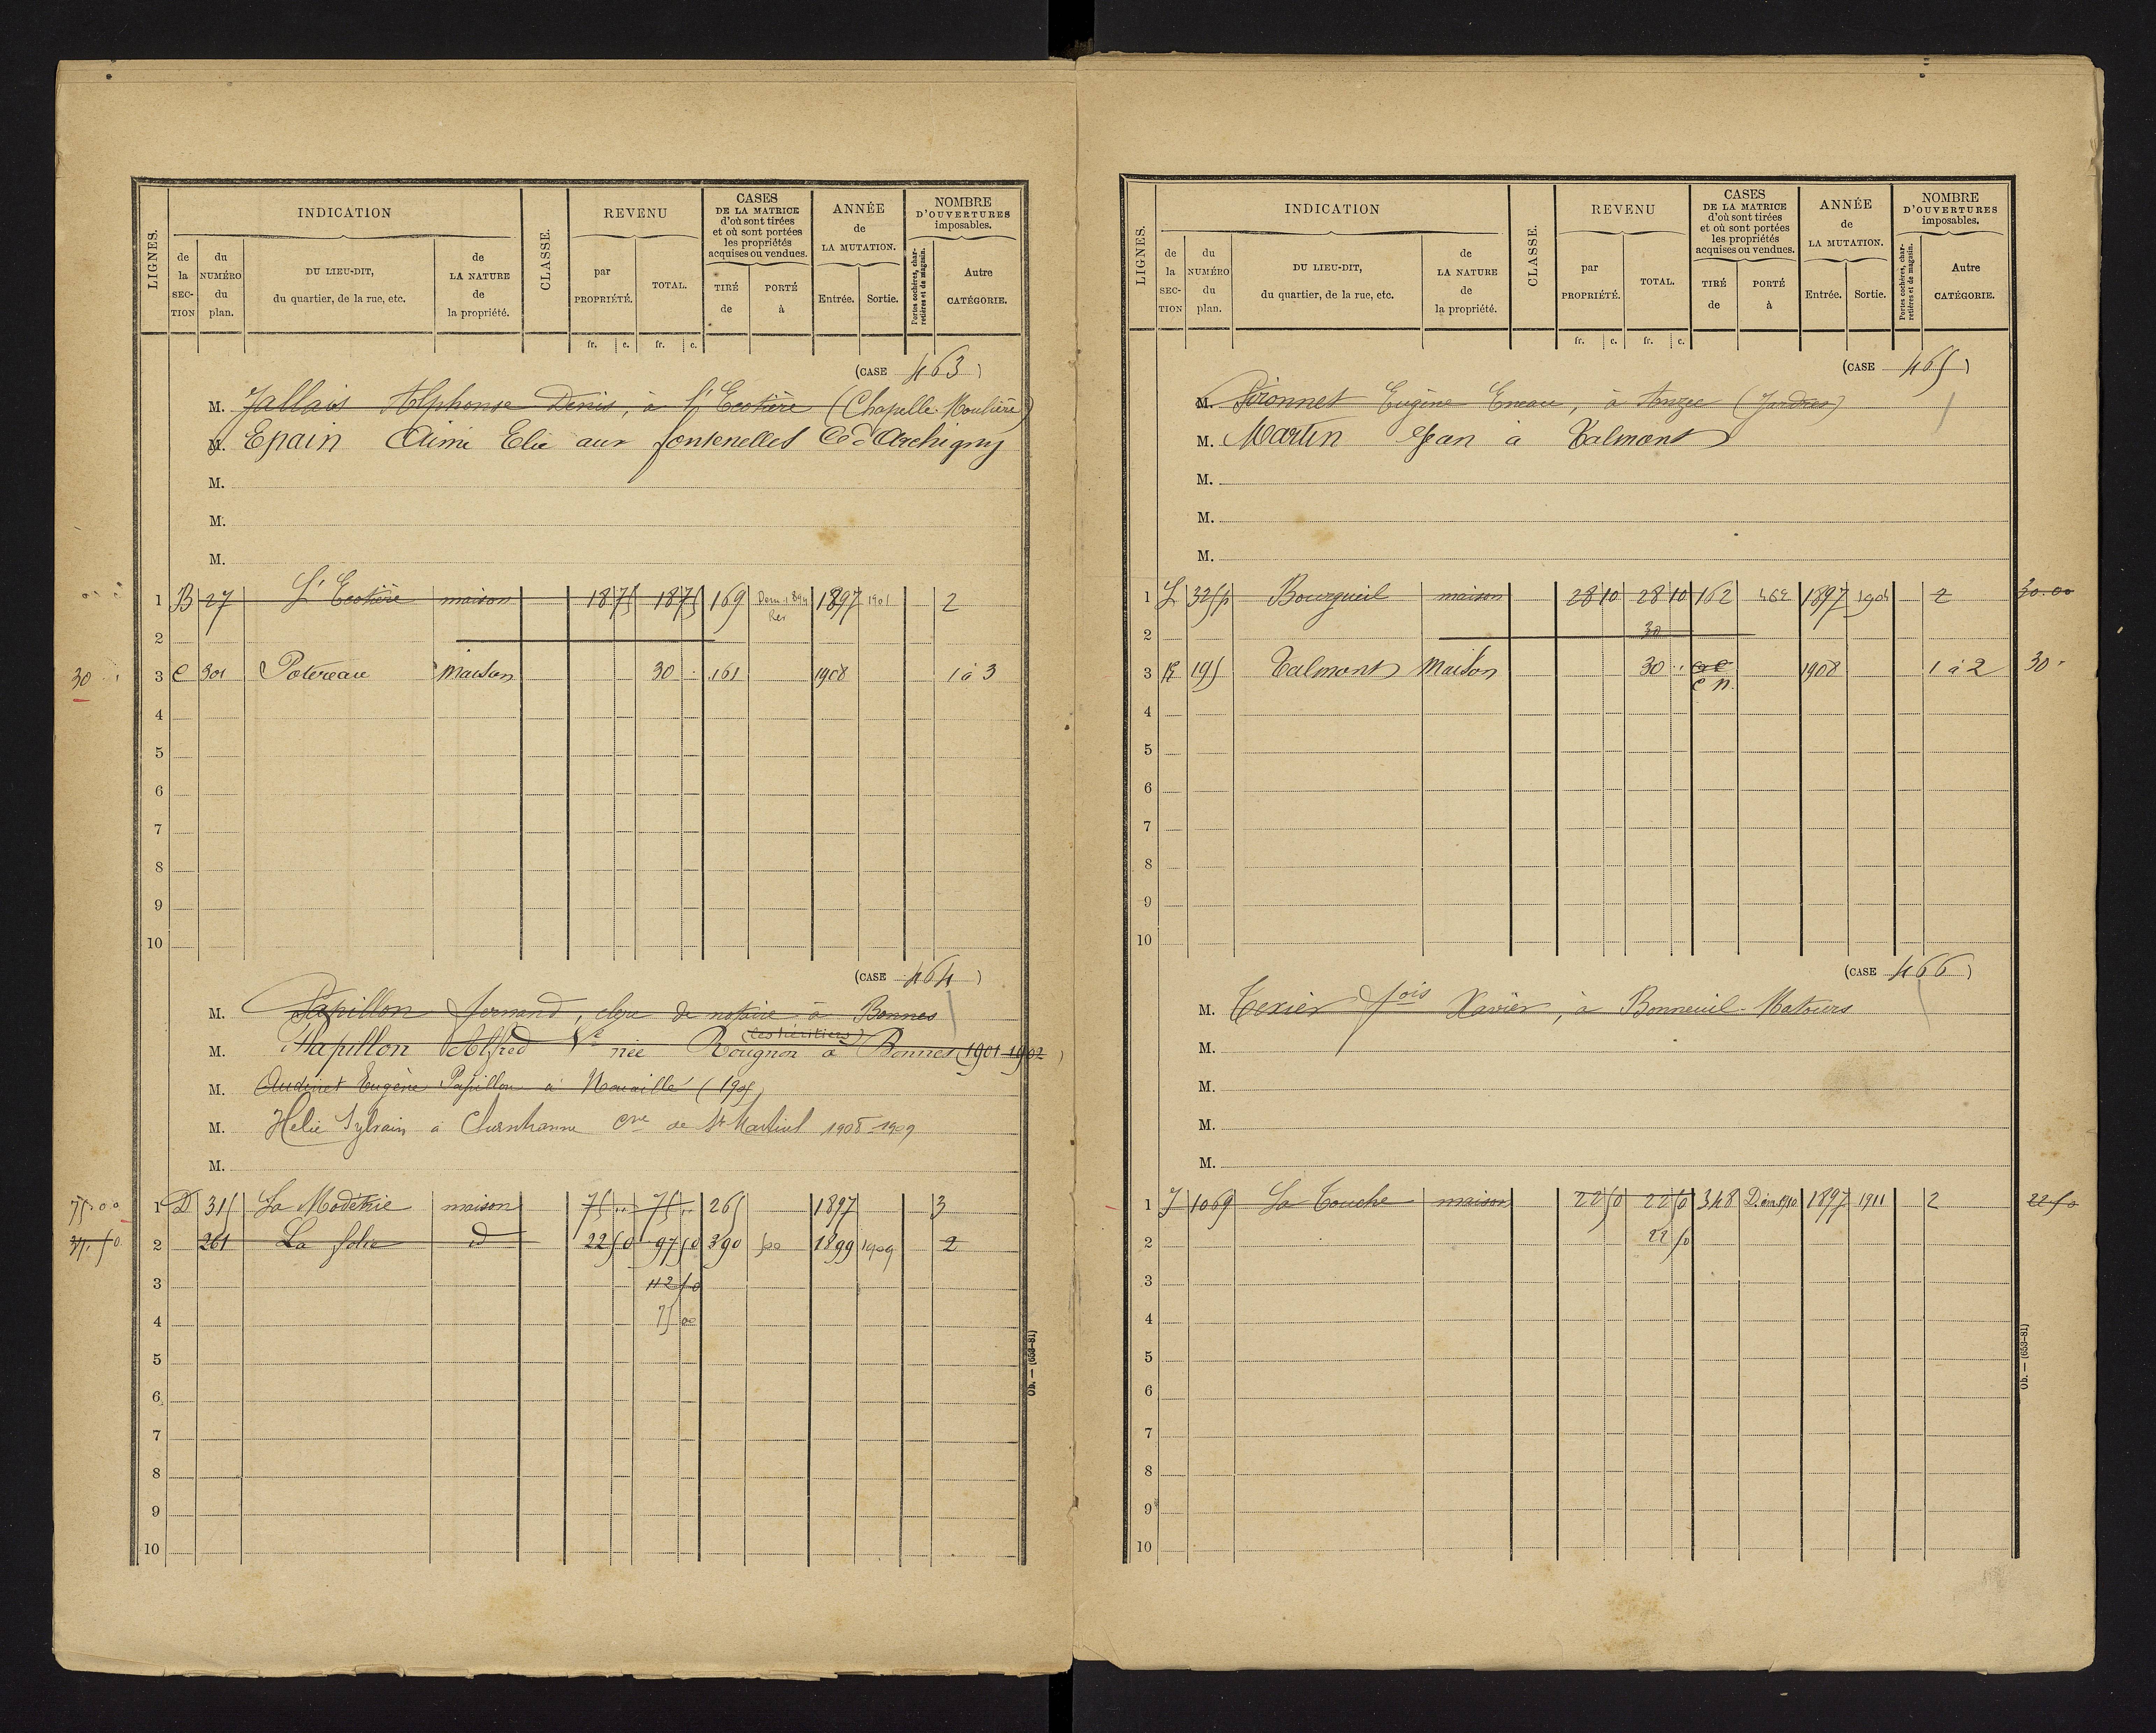 LIGNES. INDICATION CLASSE. REVENU CASES DE LA MATRICE d'où sont tirées et où sont portées les propriétés acquises ou vendues. ANNÉE de LA MUTATION. NOMBRE D'OUVERTURES imposables.
de la SECTION du NUMÉRO du plan. DU LIEU-DIT, du quartier, de la rue, etc. de LA NATURE de la propriété. par PROPRIÉTÉ. TOTAL. TIRÉ de PORTÉ à Entrée. Sortie. Portes cochères, charretières et de magasin. Autre CATÉGORIE.
fr. c. fr. c.
(CASE 463)
M. Jallais Alphonse Denis, à l'Ecotière (Chapelle-Moulière)
M. Epain Aimé Elie aux fontenelles Cne d'Archigny
M.
M.
M.
1 B 27 L'Ecotière maison 18 75 18 75 169 Dém. 1897 1901 2
2
30 3 C 301 Potereau Maison 30 161 1908 1 à 3
4
5
6
7
8
9
10
(CASE 464)
M. Papillon fernand, clerc de notaire à Bonnes
(les héritiers)
M. Papillon Alfred Ve née Rougnon à Bonnes (1901-1902)
M. Audinet Eugène Papillon à Nouaillé (1905
M. Helie Sylvain à cne de St Martial 1908-1909
M.
75.00 1 D 315 maison 75 75 265 1897 3
2 261 La folie d 22 50 97 50 390 1899 1909 2
3 112 50
4 75 00
5
6
7
8
9
10
Ob. — (653-81)
LIGNES. INDICATION CLASSE. REVENU CASES DE LA MATRICE d'où sont tirées et où sont portées les propriétés acquises ou vendues. ANNÉE de LA MUTATION. NOMBRE D'OUVERTURES imposables.
de la SECTION du NUMÉRO du plan. DU LIEU-DIT, du quartier, de la rue, etc. de LA NATURE de la propriété. par PROPRIÉTÉ. TOTAL. TIRÉ de PORTÉ à Entrée. Sortie. Portes cochères, charretières et de magasin. Autre CATÉGORIE.
fr. c. fr. c.
(CASE 465)
M. Eugène à Anzec (Jardres)
M. Martin Jean à Talmont
M.
M.
M.
1 L 325p Bourgueil maison 28 10 28 10 162 462 1897 1904 2 30.00
2 30
3 K 195 Talmont Maison 30 c n. 1908 1 à 2 30
4
5
6
7
8
9
10
(CASE 466)
M. Texier fois Xavier, à Bonneuil-Matours
M.
M.
M.
M.
1 J 1069 La Touche maison 22 50 22 50 348 1897 1911 2 22 50
2 22 50
3
4
5
6
7
8
9
10
Ob. — (653-81)